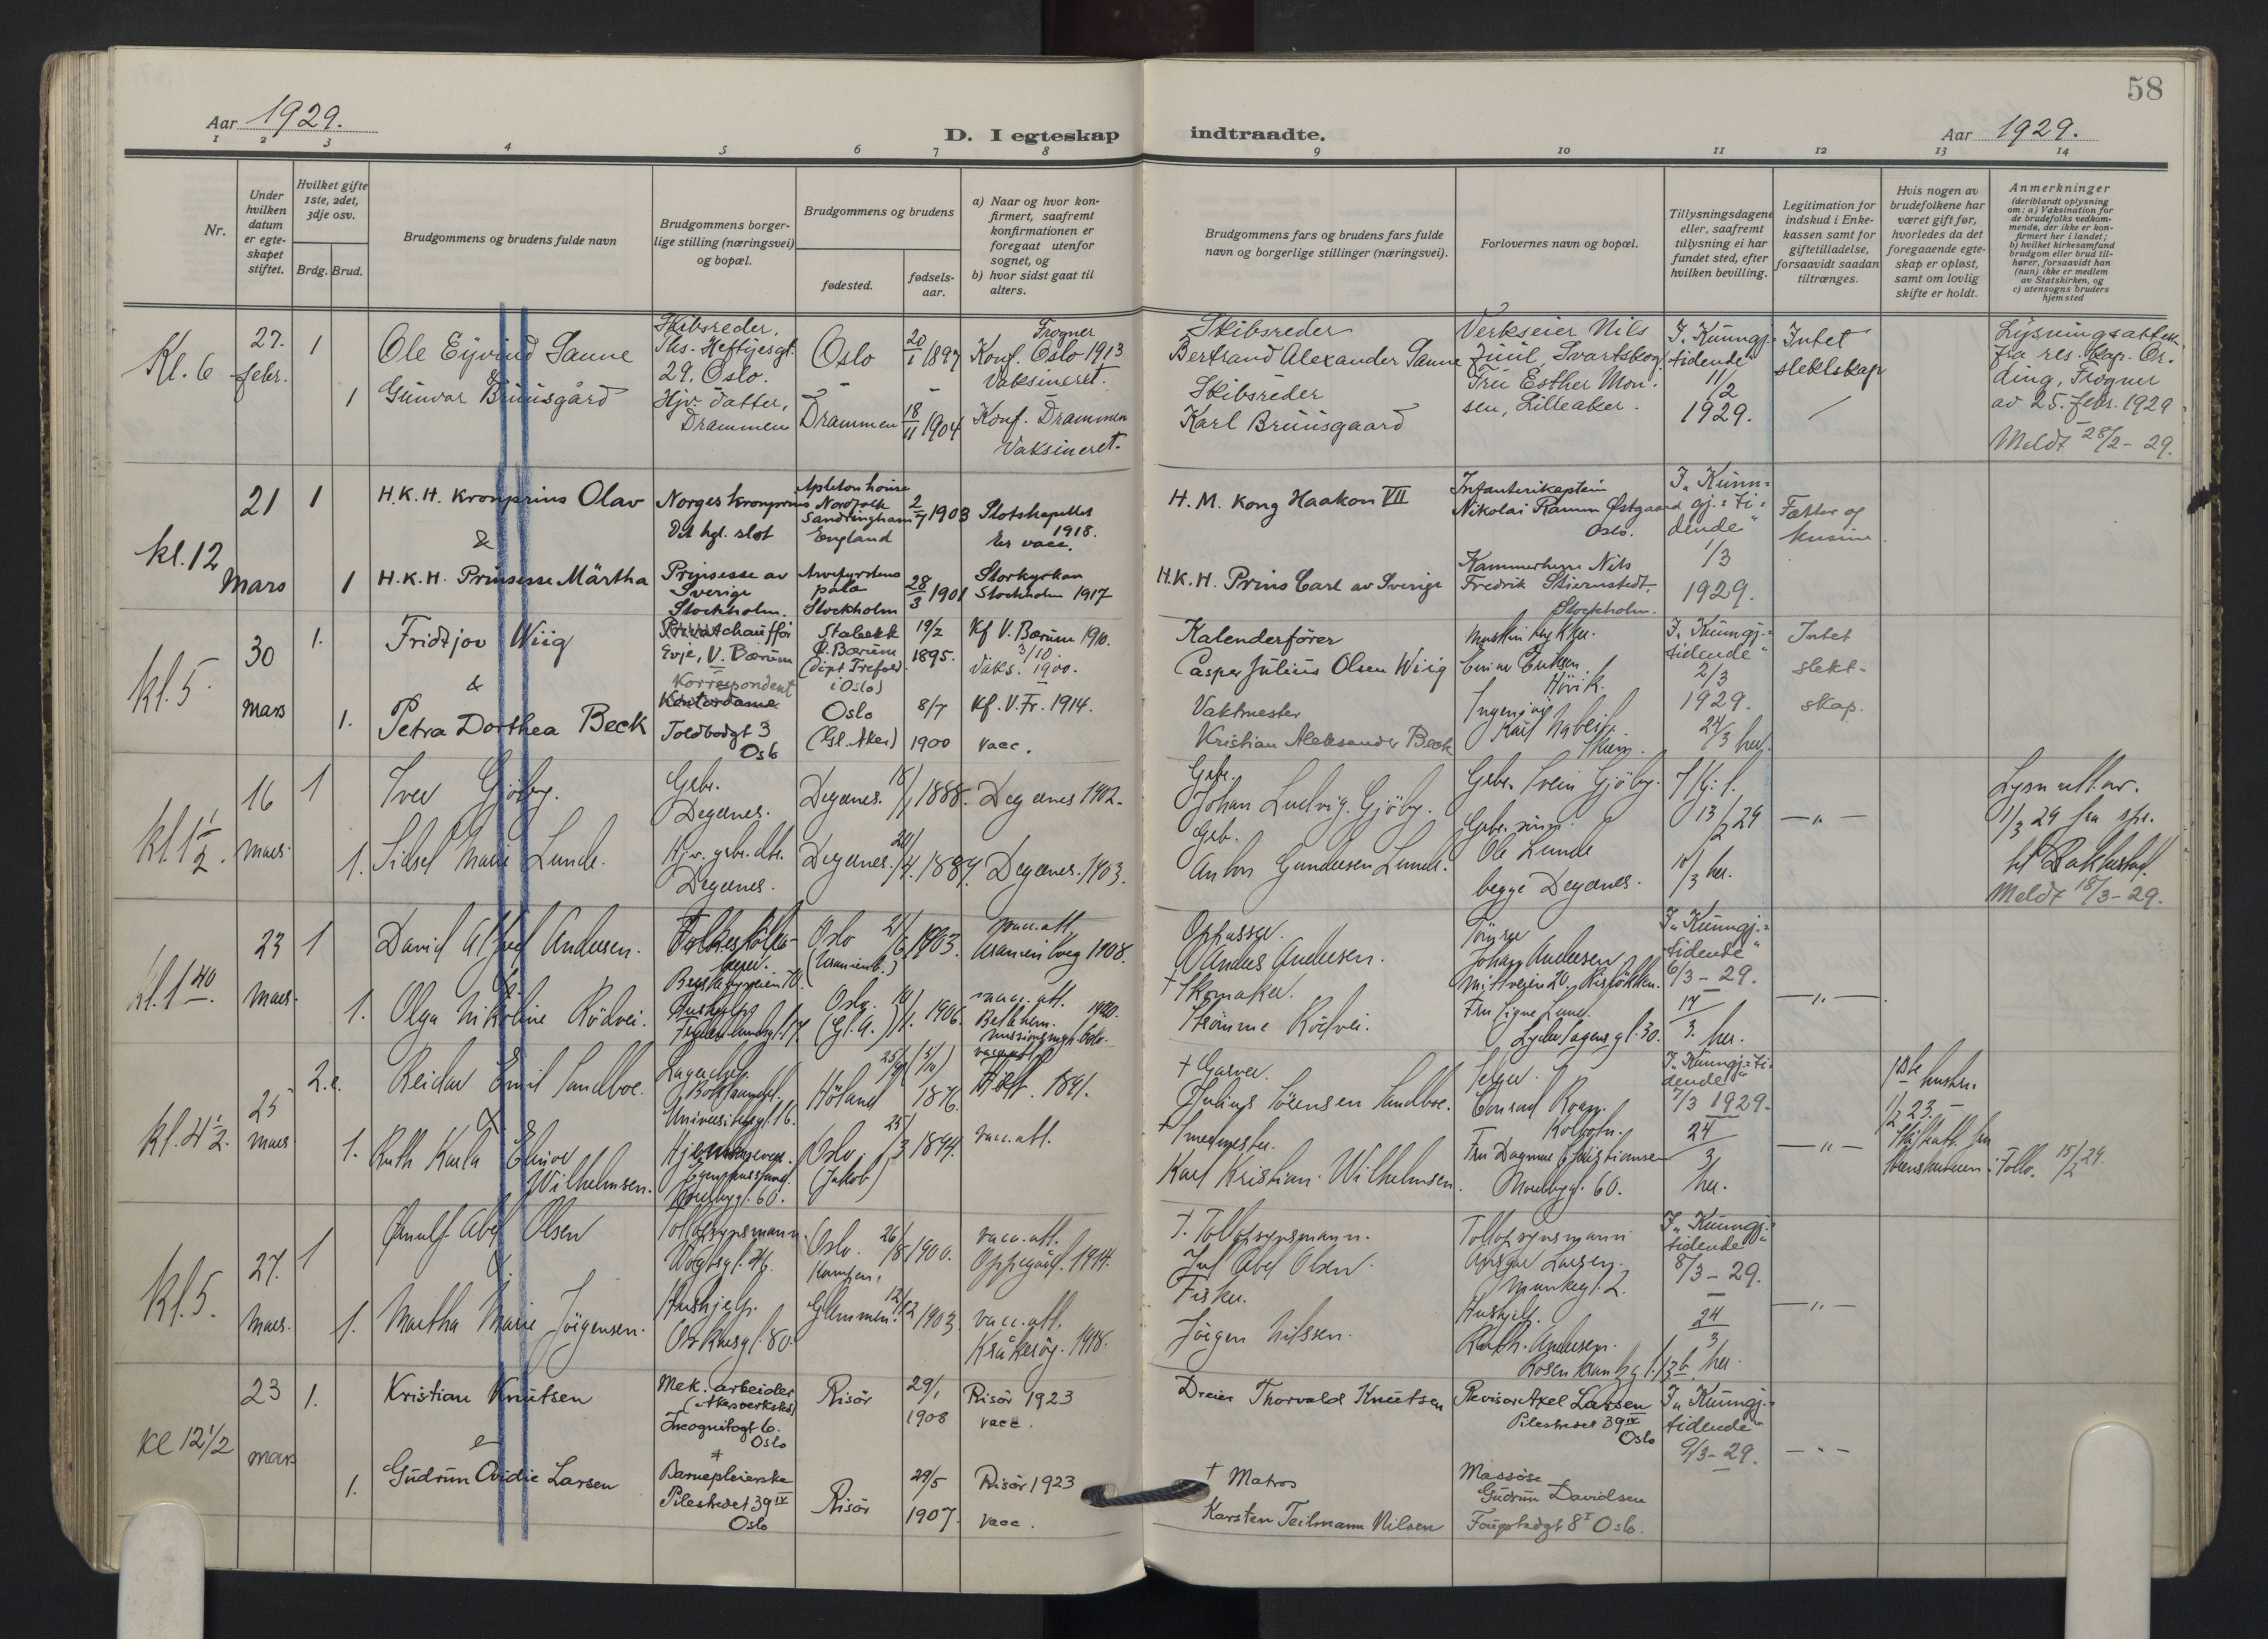 58
Aar 1929.
D. I egteskap indtraadte.
Aar 1929.
1 2 3 4 5 6 7 8 9 10 11 12 13 14
Nr.
Under
hvilken
datum
er egte-
skapet
stiftet.
Hvilket gifte
1ste, 2det,
3dje osv.
Brdg. Brud.
Brudgommens og brudens fulde navn
Brudgommens borger-
lige stilling (næringsvei)
og bopæl.
Brudgommens og brudens
fødested.
fødsels-
aar.
a) Naar og hvor kon-
firmert, saafremt
konfirmationen er
foregaat utenfor
sognet, og
b) hvor sidst gaat til
alters.
Brudgommens fars og brudens fars fulde
navn og borgerlige stillinger (næringsvei).
Forlovernes navn og bopæl.
Tillysningsdagene
eller, saafremt
tillysning ei har
fundet sted, efter
hvilken bevilling.
Legitimation for
indskud i Enke-
kassen samt for
giftetilladelse,
forsaavidt saadan
tiltrænges.
Hvis nogen av
brudefolkene har
været gift før,
hvorledes da det
foregaaende egte-
skap er opløst,
samt om lovlig
skifte er holdt.
Anmerkninger
(deriblandt oplysning
om: a) Vaksination for
de brudefolks vedkom-
mende, der ikke er kon-
firmert her i landet;
b) hvilket kirkesamfund
brudgom eller brud til-
hører, forsaavidt han
(hun) ikke er medlem
av Statskirken, og
c) utensogns bruders
hjemsted
Kl. 6
27.
febr.
1
1
Ole Eyvind Sanne
&
Gunvor Bruusgård
Skibsreder,
Ths. Heftyesgt.
29. Oslo.
Hjv. datter,
Drammen
Oslo
Drammen
20/1 1897
18/11 1904
Frogner
Konf. Oslo 1913
Vaksineret.
Konf. Drammen
Vaksineret.
Skibsreder
Bertrand Alexander Sanne
Skibsreder
Karl Bruusgaard
Verkseier Nils
Juul, Svartskog.
Fru Esther Mon-
sen, Lilleaker.
I „Kunngj.-
tidende"
11/2
1929.
Intet
slektskap
Lysningsattest
fra res. kap. Or-
ding, Frogner
av 25. febr. 1929
Meldt 28/2 - 29.
kl. 12
21
Mars
1
1
H.K.H. Kronprins Olav
&
H.K.H. Prinsesse Märtha
Norges kronprins
Det kgl. slot
Prinsesse av
Sverige
Stockholm.
Apleton house
Nordfolk
Sandringham
England
Arvefyrstens
pala
Stockholm
2/7 1903
28/3 1901
Slotskapellet
1918.
Er vacc.
Storkyrkan
Stockholm 1917
H. M. Kong Haakon VII
H.K.H. Prins Carl av Sverige
Infanterikaptein
Nikolai Ramm Østgaard
Oslo.
Kammerherre Nils
Fredrik Stiernstedt,
Stockholm.
I „Kunn-
gj.-ti-
dende"
1/3
1929.
Fætter og
kusine.
kl. 5
30
mars
1.
1.
Fridtjov Wiig
&
Petra Dorthea Beck
Privatchauffør
Evje, V. Bærum
Korrespondent
Kontordame
Toldbodgt 3
Oslo
Stabekk
V. Bærum
(dipt Trefold.
i Oslo)
Oslo
(Gl. Aker)
19/2
1895.
8/7
1900
Kf V. Bærum 1910.
3/10
Vaks. 1900.
Kf. V. Fr. 1914.
vacc.
Kalenderfører
Casper Julius Olsen Wiig
Vaktmester
Kristian Aleksander Beck
Eriksen
Høvik.
Ingeniør
Karl
I „Kunngj.-
tidende"
2/3
1929.
24/3 her.
Intet
slekt-
skap.
kl. 1 1/2.
16
mars
1
1.
Iver Gjöby.
Sidsel Marie Lunde.
Grbr.
Degernes.
Hjv. grbr. dtr.
Degernes.
Degernes.
Degernes.
18/1 1888.
20/4. 1887.
Degernes 1902.
Degernes. 1903.
Grbr.
Johan Ludvig Gjöby.
Grb.
Anton Gundersen Lunde.
Grbr. Svein Gjöby.
Grbr. sønn
Ole Lunde
begge Degernes.
13/2 29
10/3 her.
— „ —
Lysn. att. av.
11/3 29 fra spr.
til Rakkestad.
Meldt 18/3 - 29.
kl. 1 40.
23
mars.
1
1.
David Alfred Andersen.
&
Olga Nikoline Rödvei.
Oslo
(Uranienb.)
Oslo.
(Gl. A.)
21/6 1903.
10/1. 1906.
vacc. att.
Uranienborg 1908.
vacc. att.
Betlehem. 1920.
Oppasser.
Anders Andersen.
† Skomaker.
Rödvei.
Johan Andersen
Fru Signe Lund.
Lyder Sagens gt. 30.
I „Kunngj.-
tidende"
6/3 - 29.
17/3. her.
— „ —
kl. 4 1/2.
25
mars
2.
1.
Reidar Emil Sandboe.
&
Ruth Karla Elinor
Wilhelmsen.
Universitetsgt. 16.
Höland
Oslo.
(Jakob)
1876.
25/3 1894.
1891.
vacc. att.
† Garver.
Julius Sörensen Sandboe.
† Smedmester.
Karl Kristian Wilhelmsen.
Selger.
Conrad
Kolbotn.
Fru Dagmar Christiansen
60.
I „Kunngj.-ti-
dende"
7/3 1929.
24/3
her.
— „ —
1ste hustru
1/2 23.
Follo. 15/2 29.
kl. 5.
27.
mars.
1
1.
Arnulf Abel Olsen
&
Martha Marie Jörgensen.
Tollopsynsmann.
Vogtsgt. 46.
Hushjelp.
Oscarsgt. 80.
Oslo.
Kampen.
Glemmen.
26/8 1900.
12/12 1903
vacc. att.
Oppegård. 1914.
vacc. att.
Kråkeröy. 1918.
†. Tollopsynsmann.
Abel Olsen.
Fisker.
Jörgen Nilssen.
Tollopsynsmann
Ansgar Larsen.
Munkegt. 2.
Hushjelp.
Andersen.
Rosenkrantzgt. 13 b.
I „Kunngj.-
tidende"
8/3 - 29.
24/3
her.
— „ —
kl 12 1/2
23
mars
1.
1.
Kristian Knutsen
&
Gudrun Ovidie Larsen
Mek. arbeider
(Akersverksted)
Incognitogt 6.
Oslo
Barnepleierske
Pilestredet 39 IV
Oslo
Risör
Risör
29/1
1908
29/5
1907.
Risör 1923
vacc.
Risör 1923
vacc.
Dreier Thorvald Knutsen
† Matros
Karsten Teilmann Nilsen
Revisor Axel Larsen
Pilestredet 39 IV
Oslo
Massöse
Gudrun Davidsen
8 I Oslo.
I „Kunngj.-
tidende"
9/3 - 29.
— „ —